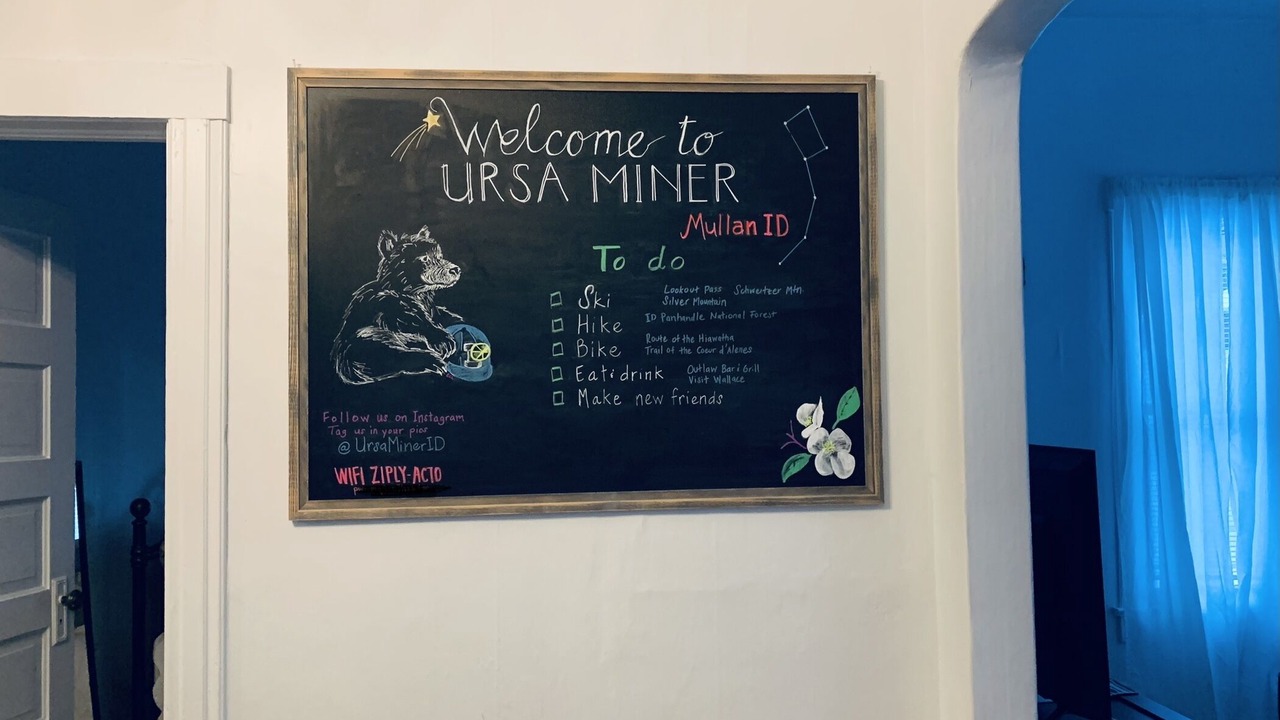 Welcome to
URSA MINER
Mullan ID
To do
Ski Lookout Pass Schweitzer Mtn.
Silver Mountain
Hike ID Panhandle National Forest
Bike Route of the Hiawatha
Trail of the Coeur d'Alenes
Eat & drink Outlaw Bar & Grill
Visit Wallace
Make new friends
Follow us on Instagram
Tag us in your pics
@UrsaMinerID
WIFI ZIPLY-ACTO